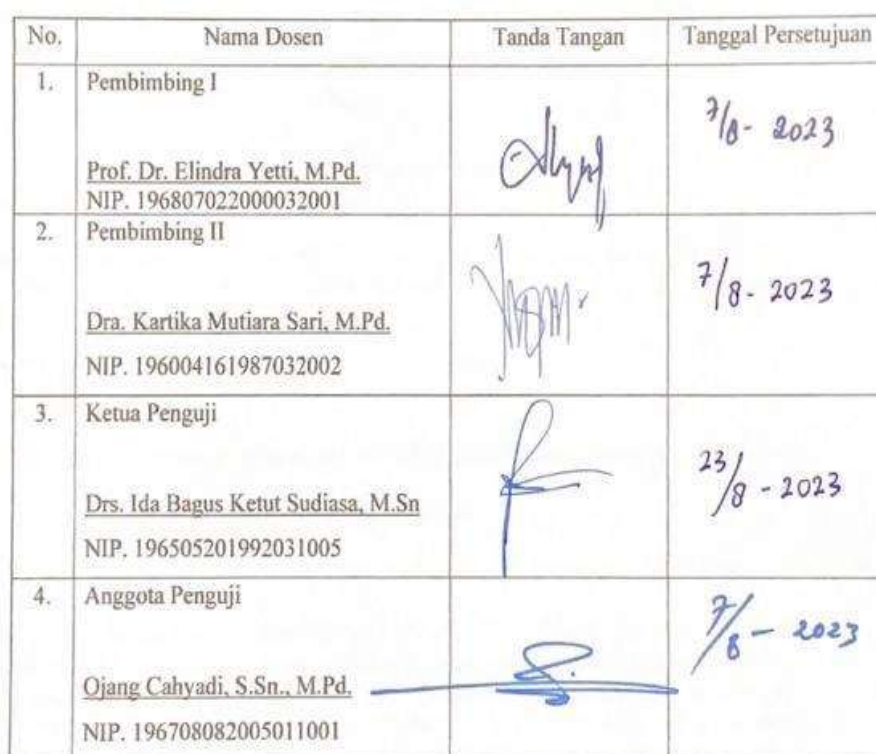 No. Nama Dosen Tanda Tangan Tanggal Persetujuan
1. Pembimbing I
7/8 - 2023
Prof. Dr. Elindra Yetti, M.Pd.
NIP. 196807022000032001
2. Pembimbing II
7/8 - 2023
Dra. Kartika Mutiara Sari, M.Pd.
NIP. 196004161987032002
3. Ketua Penguji
23/8 - 2023
Drs. Ida Bagus Ketut Sudiasa, M.Sn
NIP. 196505201992031005
4. Anggota Penguji
7/8 - 2023
Ojang Cahyadi, S.Sn., M.Pd.
NIP. 196708082005011001